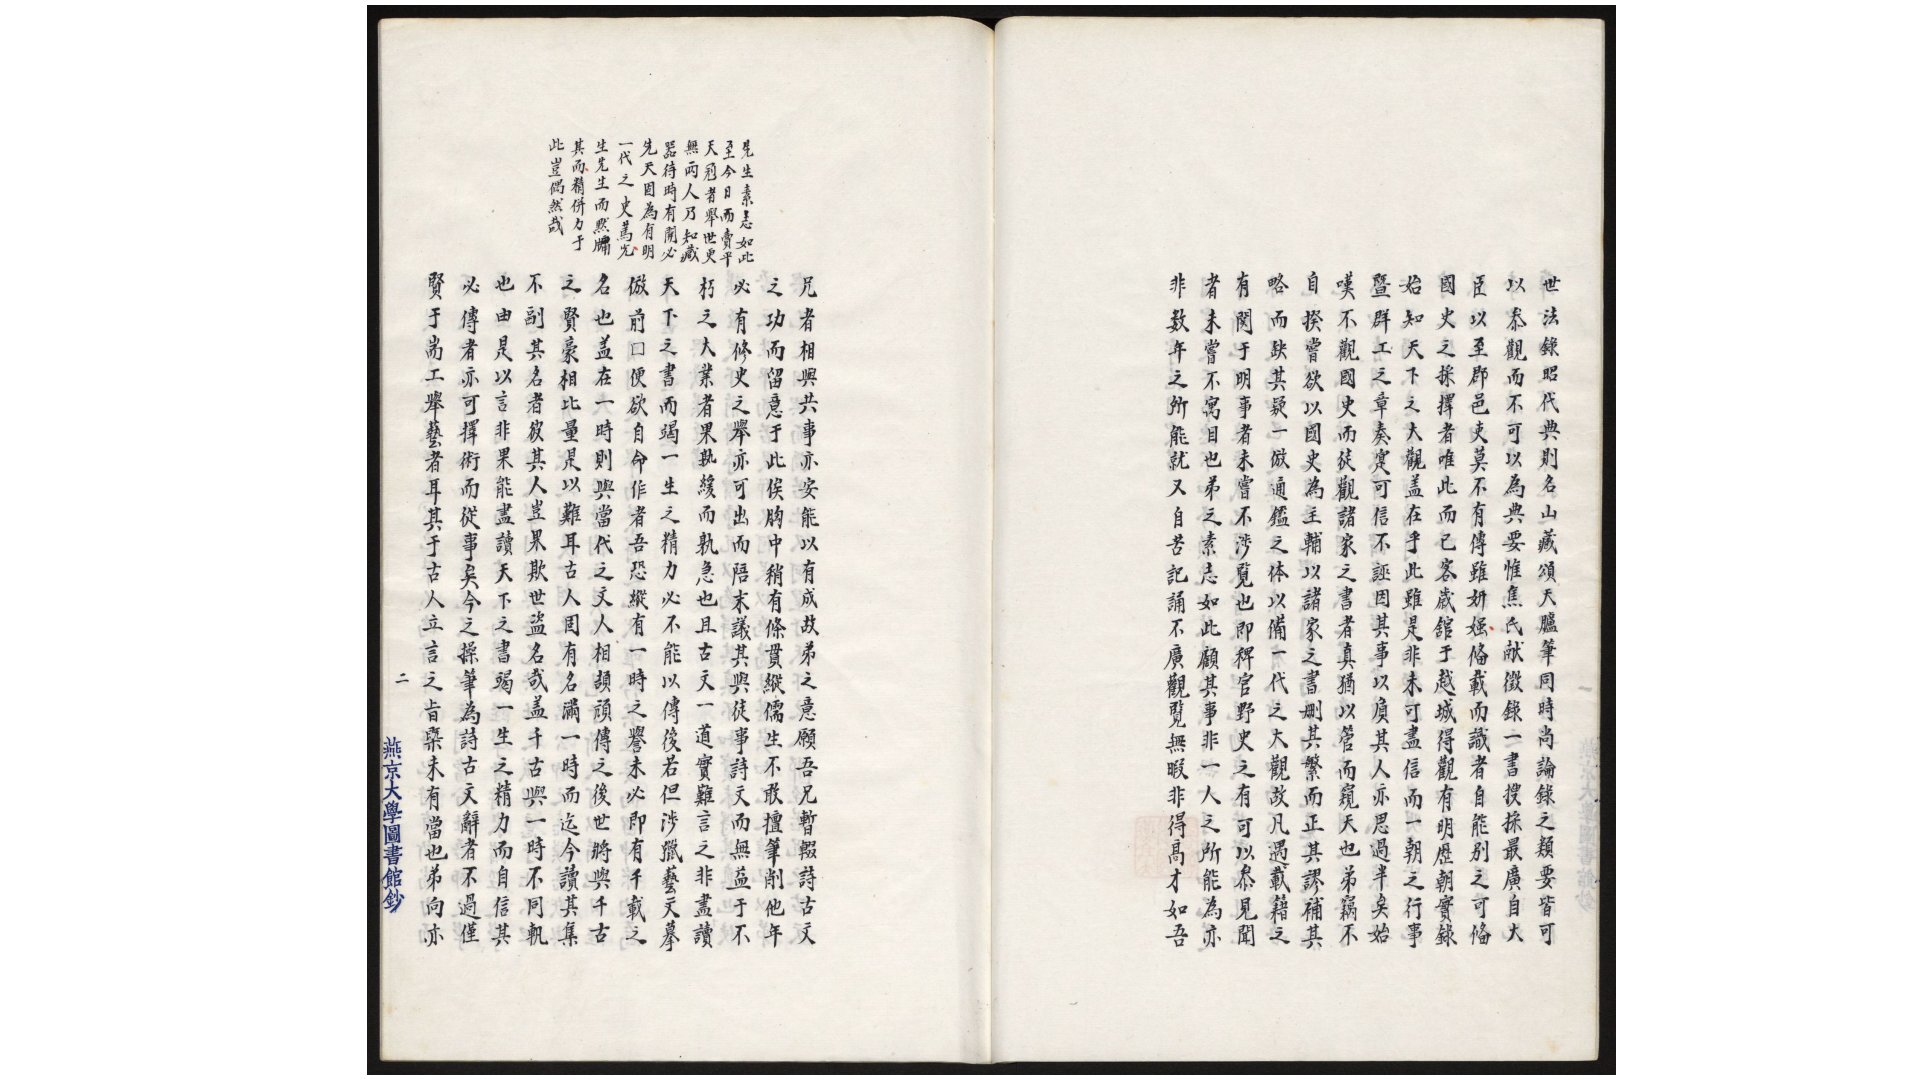 世法錄昭代典則名山藏頌天臚筆同時尚論錄之類要皆可
以叅觀而不可以為典要惟焦氏献徵錄一書搜採最廣自大
臣以至郡邑吏莫不有傳雖妍媸俻載而識者自能别之可俻
國史之採擇者唯此而已客歲舘于越城得觀有明歷朝實錄
始知天下之大觀盖在乎此雖是非未可盡信而一朝之行事
暨群工之章奏寔可信不誣因其事以質其人亦思過半矣始
嘆不觀國史而徒觀諸家之書者真猶以管而窺天也弟竊不
自揆嘗欲以國史為主輔以諸家之書删其繁而正其謬補其
略而缺其疑一倣通鑑之体以備一代之大觀故凡遇載籍之
有関于明事者未嘗不涉覽也即稗官野史之有可以叅見聞
者未嘗不寓目也弟之素志如此顧其事非一人之所能為亦
非数年之所能就又自苦記誦不廣觀覽無暇非得高才如吾
兄者相與共事亦安能以有成故弟之意願吾兄暫輟詩古文
之功而留意于此俟胸中稍有條貫縱儒生不敢擅筆削他年
必有修史之舉亦可出而陪末議其與徒事詩文而無益于不
朽之大業者果孰緩而孰急也且古文一道實難言之非盡讀
天下之書而竭一生之精力必不能以傳後若但涉獵藝文摹
倣前口便欲自命作者吾恐縱有一時之譽未必即有千載之
名也盖在一時則與當代之文人相頡頏傳之後世將與千古
之賢豪相比量是以難耳古人固有名滿一時而迄今讀其集
不副其名者彼其人豈果欺世盜名哉盖千古與一時不同軌
也由是以言非果能盡讀天下之書竭一生之精力而自信其
必傳者亦可擇術而從事矣今之操筆為詩古文辭者不過僅
賢于耑工舉藝者耳其于古人立言之旨槩未有當也弟向亦
先生素志如此
至今日而賣平
天冠者舉世更
無両人乃知藏
器待時有開必
先天因為有明
一代之史篤光
生先生而黙牖
其而精併力于
此豈偶然哉
二
燕京大學圖書館鈔